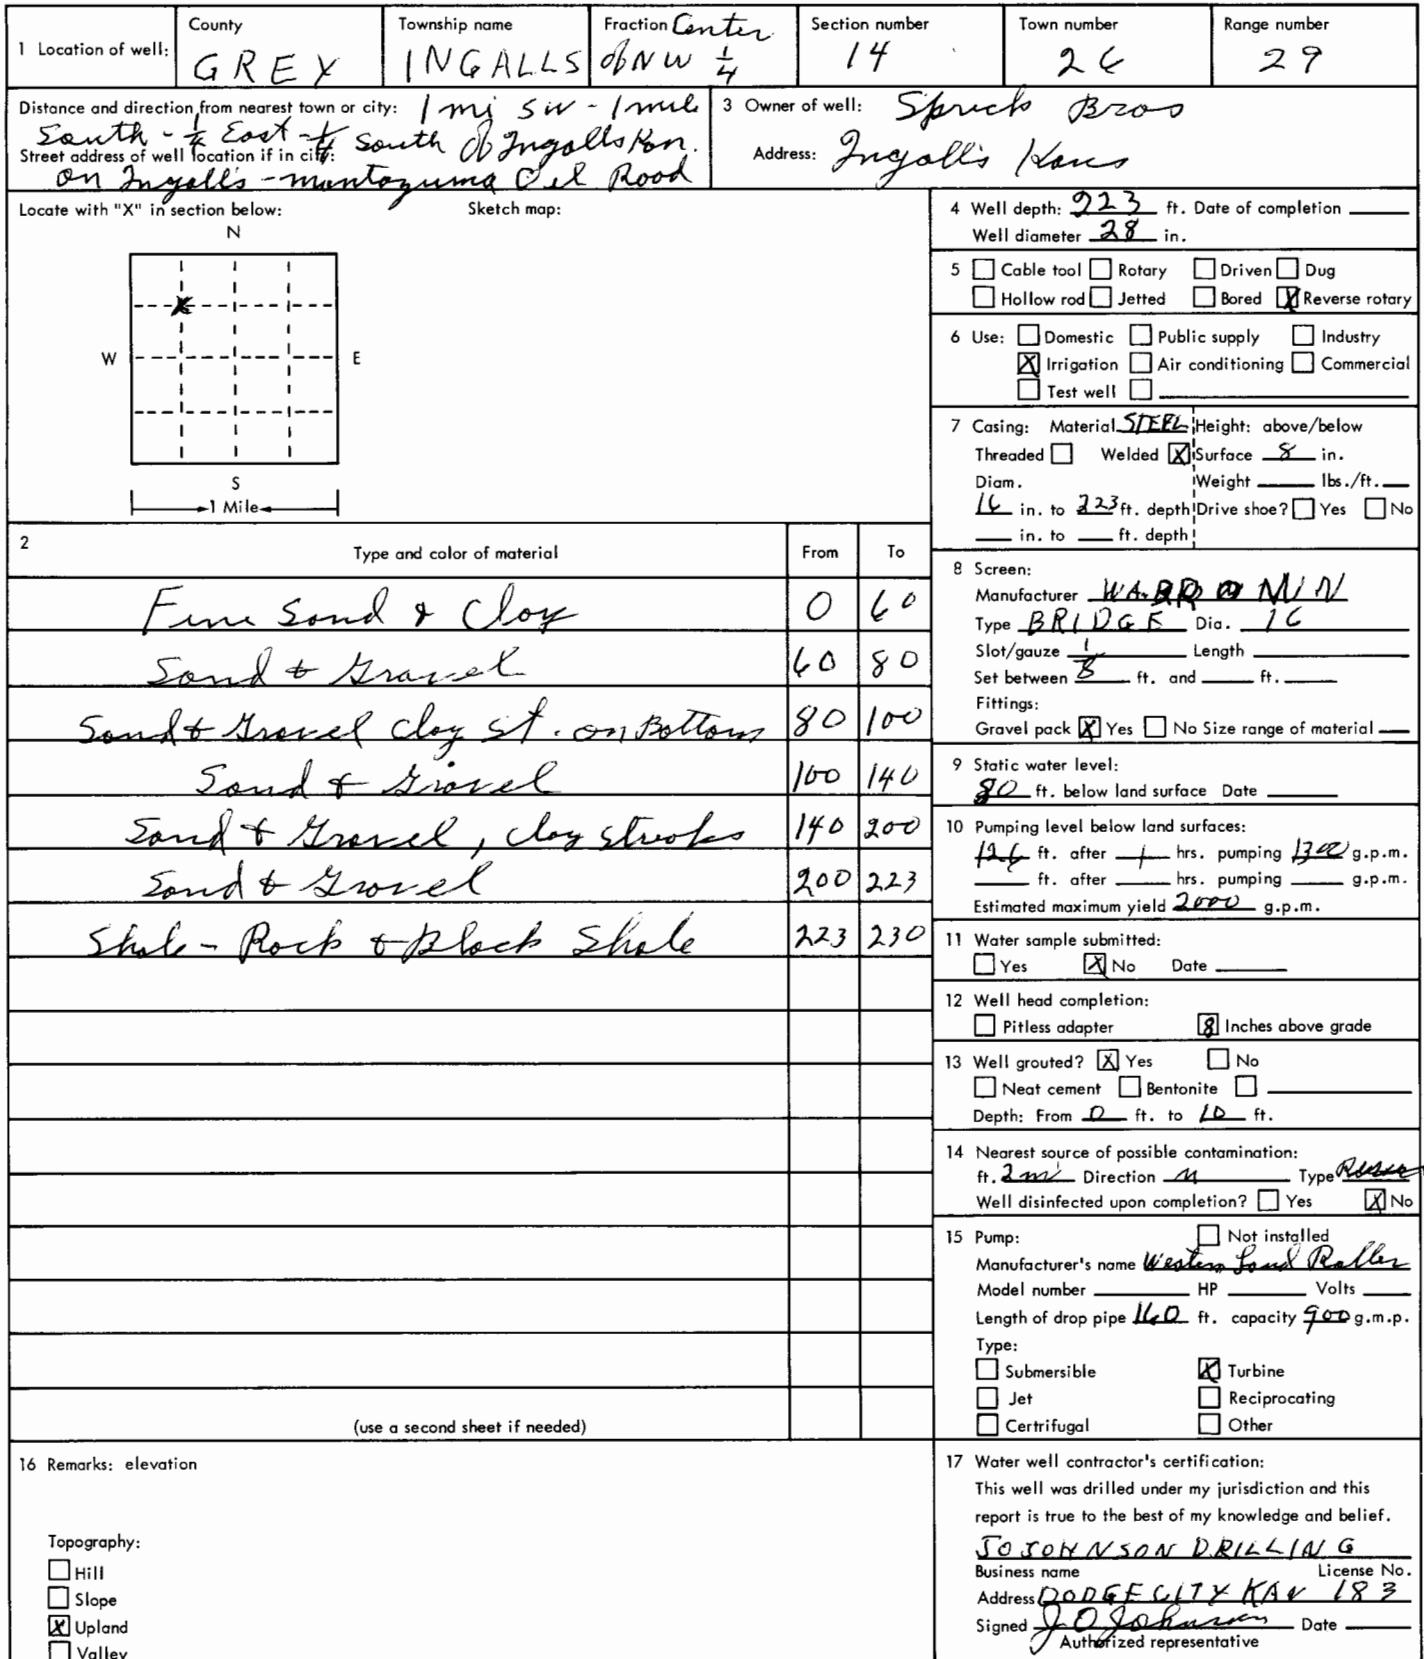 1 Location of well: County GREY Township name INGALLS Fraction Center of NW 1/4 Section number 14 Town number 26 Range number 29
Distance and direction from nearest town or city: 1 mi SW - 1 mile
South - 1/4 East - 1/4 South of Ingalls Kan.
Street address of well location if in city:
on Ingalls - montazuma Oil Road
3 Owner of well: Bros
Address: Ingall's Kans
Locate with "X" in section below: Sketch map:
N
X
W E
S
1 Mile
2 Type and color of material From To
Fine Sand & Clay 0 60
Sand & Gravel 60 80
Sand & Gravel Clay st. on Bottom 80 100
Sand & Gravel 100 140
Sand & Gravel, clay streaks 140 200
Sand & Gravel 200 223
Shale - Rock & Black Shale 223 230
(use a second sheet if needed)
4 Well depth: 223 ft. Date of completion
Well diameter 28 in.
5 Cable tool Rotary Driven Dug
Hollow rod Jetted Bored X Reverse rotary
6 Use: Domestic Public supply Industry
X Irrigation Air conditioning Commercial
Test well
7 Casing: Material STEEL Height: above/below
Threaded Welded X Surface 8 in.
Diam. Weight lbs./ft.
16 in. to 223 ft. depth Drive shoe? Yes No
in. to ft. depth
8 Screen:
Manufacturer
Type BRIDGE Dia. 16
Slot/gauze 1/8 Length
Set between ft. and ft.
Fittings:
Gravel pack X Yes No Size range of material
9 Static water level:
80 ft. below land surface Date
10 Pumping level below land surfaces:
126 ft. after 1 hrs. pumping 1300 g.p.m.
ft. after hrs. pumping g.p.m.
Estimated maximum yield 2000 g.p.m.
11 Water sample submitted:
Yes X No Date
12 Well head completion:
Pitless adapter 8 Inches above grade
13 Well grouted? X Yes No
Neat cement Bentonite
Depth: From 0 ft. to 10 ft.
14 Nearest source of possible contamination:
ft. 2 mi Direction N Type
Well disinfected upon completion? Yes X No
15 Pump: Not installed
Manufacturer's name Western Land Roller
Model number HP Volts
Length of drop pipe 160 ft. capacity 900 g.m.p.
Type:
Submersible X Turbine
Jet Reciprocating
Certrifugal Other
16 Remarks: elevation
Topography:
Hill
Slope
X Upland
Valley
17 Water well contractor's certification:
This well was drilled under my jurisdiction and this
report is true to the best of my knowledge and belief.
JO JOHNSON DRILLING
Business name License No.
Address DODGE CITY KAN 183
Signed J O Johnson Date
Authorized representative